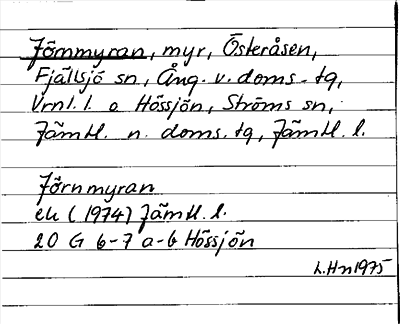 Jörnmyran, myr, Österåsen,
Fjällsjö sn, Ång. v. doms. tg,
Vrnl. l. o Hössjön, Ströms sn,
Jämtl. n. doms. tg, Jämtl. l.
Jörnmyran
ek (1974) Jämtl. l.
20 G 6-7 a-b Hössjön
L.Hn 1975